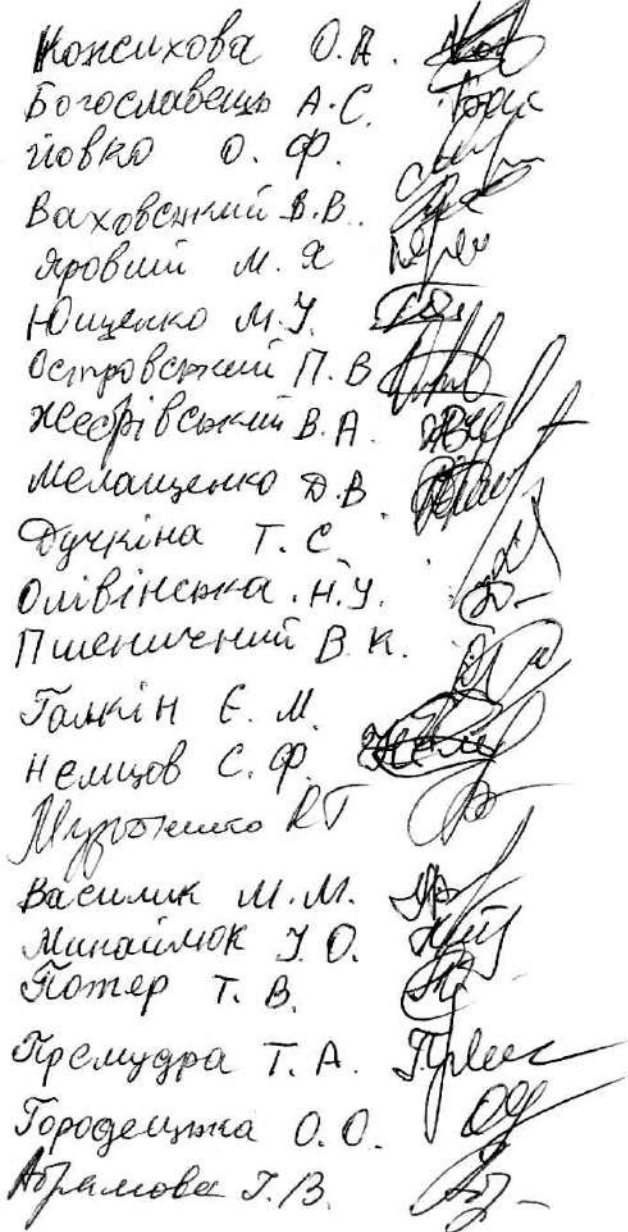 Кожихова О.А.
Богославець А.С.
Йовко О.Ф.
Ваховський В.В.
Яровий М.Я
Ющенко М.У.
Островський П.В
В.А.
Мелащенко Д.В
Дучкіна Т.С
Олівінська.Н.У.
Пшеничний В.К.
Галкін Є.М.
Немцов С.Ф.
Василик М.М.
Минаймюк У.О.
Потер Т.В.
Премудра Т.А.
Городецька О.О.
Абрамова І.В.